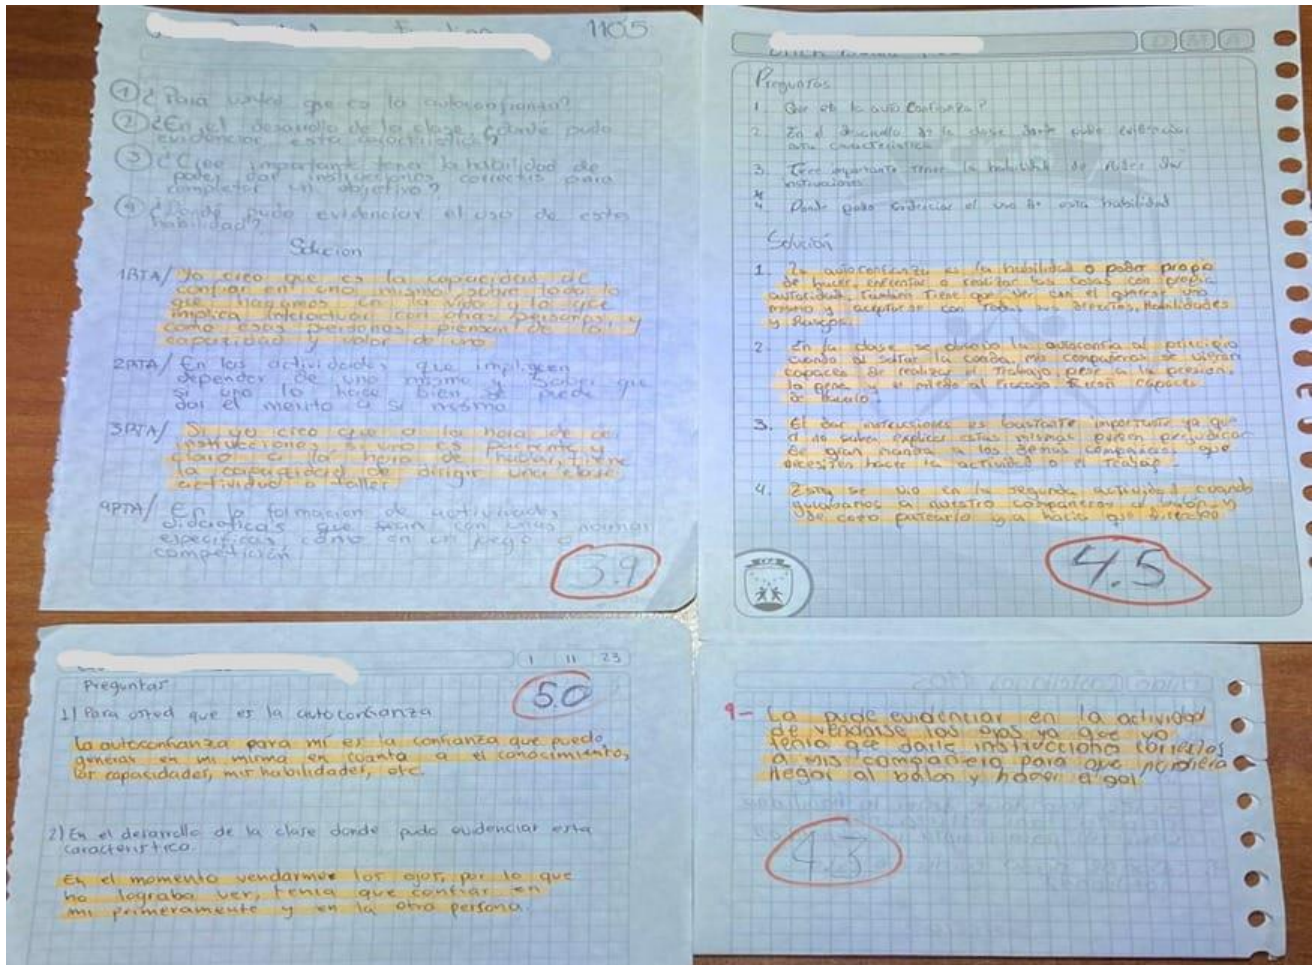 1105
① ¿Para usted que es la autoconfianza?
② ¿En el desarrollo de la clase, donde pudo
evidenciar esta caracteristica?
③ ¿Cree importante tener la habilidad de
poder dar instrucciones correctas para
completar un objetivo?
④ ¿Donde pudo evidenciar el uso de esta
habilidad?
Solucion
1RTA/ Yo creo que es la capacidad de
confiar en uno mismo sobre todo lo
que hagamos en la vida y lo que
implica interactuar con otras personas y
como esas personas piensan de la
capacidad y valor de uno
2RTA/ En las actividades que impliquen
depender de uno mismo y saber que
si uno lo hace bien se puede
dar el merito a si mismo
3RTA/ Si yo creo que a la hora de
instrucciones si uno es paciente y
claro a la hora de hablar, tiene
la capacidad de dirigir una clase
actividad o taller
4RTA/ En la formacion de actividades
didacticas que sean con unas normas
especificas como en un juego o
competición
3.9
D M A
Preguntas
1 Que es la auto confianza?
2 En el desarrollo de la clase donde pude evidenciar
esta caracteristica
3. Cree importante tener la habilidad de poder dar
instrucciones
4 Donde pudo evidenciar el uso de esta habilidad
Solución
1. La autoconfianza es la habilidad o poder propio
de hacer, enfrentar o realizar las cosas con propia
autoridad, también tiene que ver con el quererse uno
mismo y aceptarse con todos sus defectos, Habilidades
y
2. En la clase se observó la autoconfia al principio
cuando al saltar la cuerda, mis compañeros se vieron
capaces de realizar el trabajo, pese a la presion,
la pena y el miedo al fracaso fueron capaces
de hacerlo
3. El dar instrucciones es bastante importante ya que
el no saber explicar estas mismas pueden perjudicar
de gran manera a los demas compañeros que
necesiten hacer la actividad o el trabajo.
4. Esta se vio en la segunda actividad cuando
guiabamos a nuestro compañero al balón y
de como patearlo y a hacia que dirección
4.5
1 11 23
Preguntas
5.0
1) Para usted que es la autoconfianza
La autoconfianza para mí es la confianza que puedo
generar en mi misma en cuanto a el conocimiento,
las capacidades, mis habilidades, etc.
2) En el desarrollo de la clase donde pudo evidenciar esta
caracteristica.
En el momento vendarme los ojos, por lo que
no lograba ver, tenia que confiar en
mi primeramente y en la otra persona.
4- La pude evidenciar en la actividad
de vendarse los ojos ya que yo
tenia que darle instrucciones correctas
a mis compañero para que pudiera
llegar al balon y hacer el gol
4.3